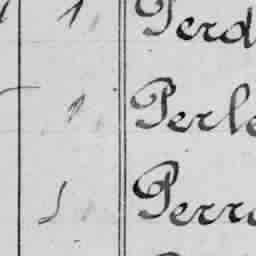 1, Perd
1, Perle
5, Perr